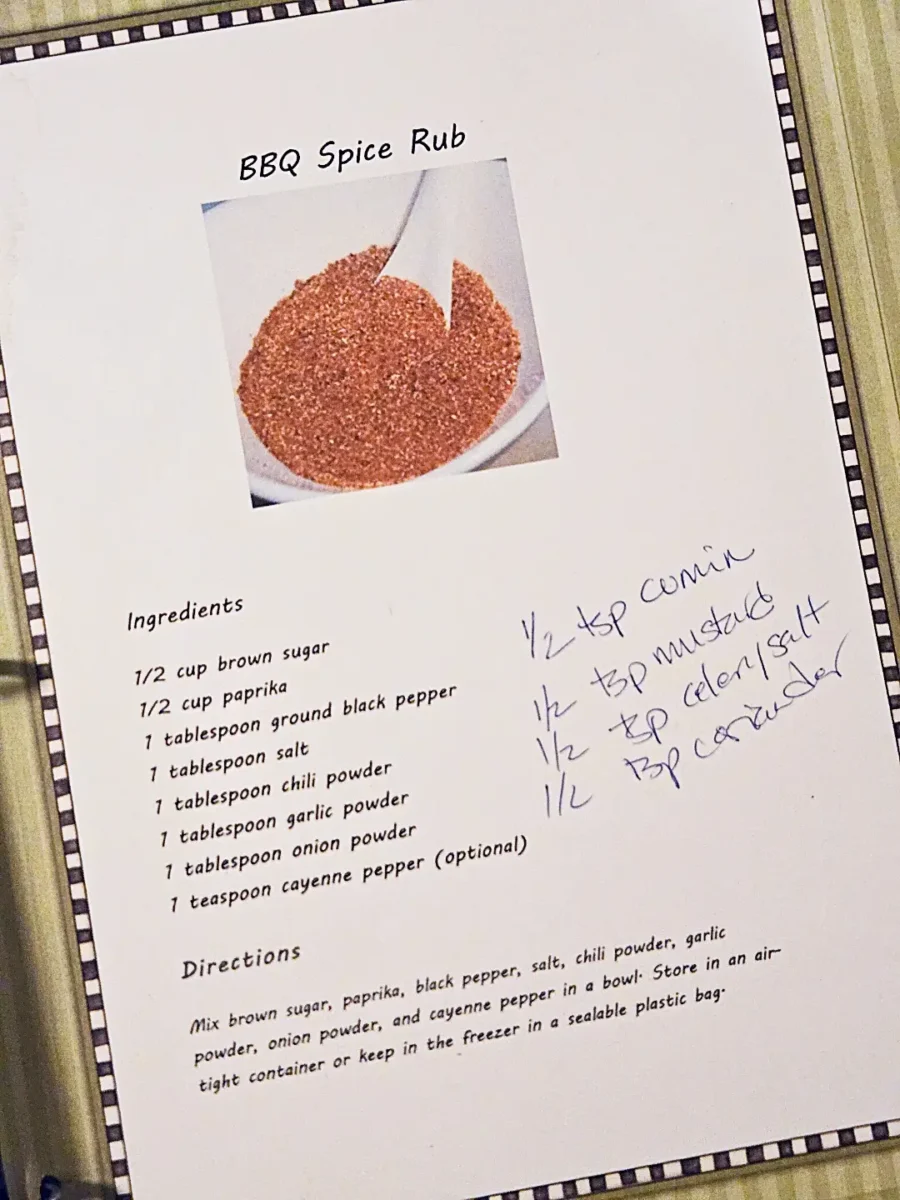 BBQ Spice Rub
Ingredients
1/2 cup brown sugar
1/2 cup paprika
1 tablespoon ground black pepper
1 tablespoon salt
1 tablespoon chili powder
1 tablespoon garlic powder
1 tablespoon onion powder
1 teaspoon cayenne pepper (optional)
1/2 tsp cumin
1/2 tsp mustard
1/2 tsp celery/salt
1/2 tsp coriander
Directions
Mix brown sugar, paprika, black pepper, salt, chili powder, garlic
powder, onion powder, and cayenne pepper in a bowl. Store in an air-
tight container or keep in the freezer in a sealable plastic bag.